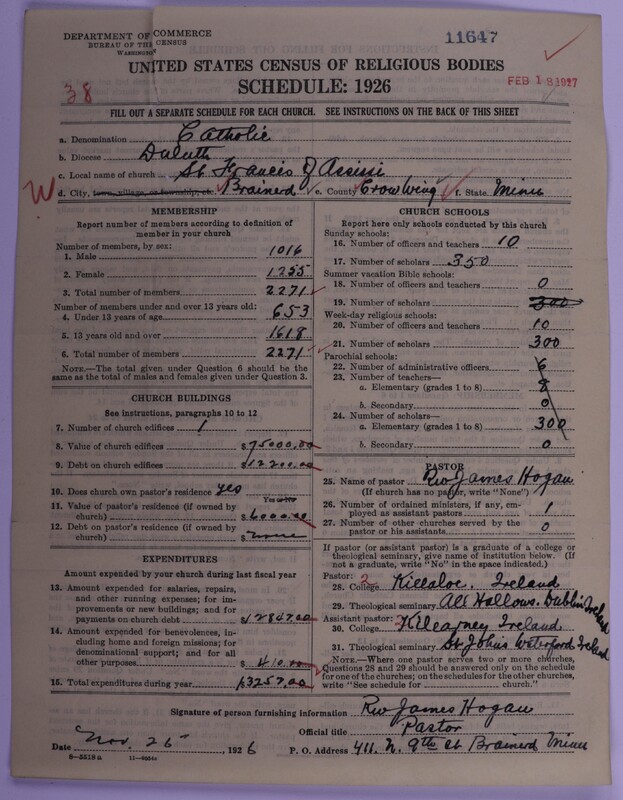 DEPARTMENT OF COMMERCE
BUREAU OF THE CENSUS
WASHINGTON
11647
UNITED STATES CENSUS OF RELIGIOUS BODIES
SCHEDULE: 1926
FEB 18 1927
38
FILL OUT A SEPARATE SCHEDULE FOR EACH CHURCH. SEE INSTRUCTIONS ON THE BACK OF THIS SHEET
a. Denomination Catholic
b. Diocese Duluth
c. Local name of church St Francis of Assisi
d. City, town, village, or township, etc. Brainerd e. County Crow Wing f. State Minn
MEMBERSHIP
Report number of members according to definition of
member in your church
Number of members, by sex:
1. Male 1016
2. Female 1255
3. Total number of members 2271
Number of members under and over 13 years old:
4. Under 13 years of age 653
5. 13 years old and over 1618
6. Total number of members 2271
NOTE.—The total given under Question 6 should be
same as the total of males and females given under Question 3.
CHURCH BUILDINGS
See instructions, paragraphs 10 to 12
7. Number of church edifices 1
8. Value of church edifices $75000.00
9. Debt on church edifices $12200.00
10. Does church own pastor's residence yes
Yes or No
11. Value of pastor's residence (if owned by
church) $6000.00
12. Debt on pastor's residence (if owned by
church) $none
EXPENDITURES
Amount expended by church during last fiscal year
13. Amount expended for salaries, repairs,
and other running expenses; for im-
provements or new buildings; and for
payments on church debt $12847.00
14. Amount expended for benevolences, in-
cluding home and foreign missions; for
denominational support; and for all
other purposes $410.00
15. Total expenditures during year $13257.00
CHURCH SCHOOLS
Report here only schools conducted by this church
Sunday schools:
16. Number of officers and teachers 10
17. Number of scholars 350
Summer vacation Bible schools:
18. Number of officers and teachers 0
19. Number of scholars 300
Week-day religious schools:
20. Number of officers and teachers 10
21. Number of scholars 300
Parochial schools:
22. Number of administrative officers 6
23. Number of teachers—
a. Elementary (grades 1 to 8) 8
b. Secondary 0
24. Number of scholars—
a. Elementary (grades 1 to 8) 300
b. Secondary 0
PASTOR
25. Name of pastor Rev James Hogan
(If church has no pastor, write "None")
26. Number of ordained ministers, if any, em-
ployed as assistant pastors 1
27. Number of other churches served by the
pastor or his assistants 0
If pastor (or assistant pastor) is a graduate of a college or
theological seminary, give name of institution below. (If
not a graduate, write "No" in the space indicated.)
Pastor:
28. College 2 Killaloe. Ireland
29. Theological seminary All Hallows. Dublin Ireland
Assistant pastor:
30. College Kilearney Ireland
31. Theological seminary St John's Waterford Ireland
NOTE.—Where one pastor serves two or more churches,
Questions 28 and 29 should be answered only on the schedule
for one of the churches; on the schedules for the other churches,
write "See schedule for church."
Signature of person furnishing information Rev James Hogan
Official title Pastor
Date Nov. 26, 1926 P. O. Address 411. N. 9th St Brainerd Minn
8—5519a 11—9264a